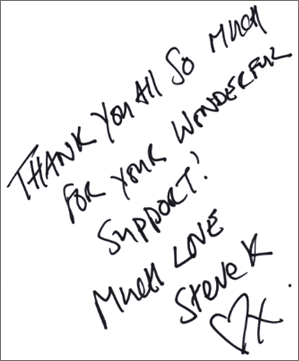 THANK YOU All SO MUCH
FOR YOUR WONDERFUL
SUPPORT!
MUCH LOVE
Steve K
♡X.